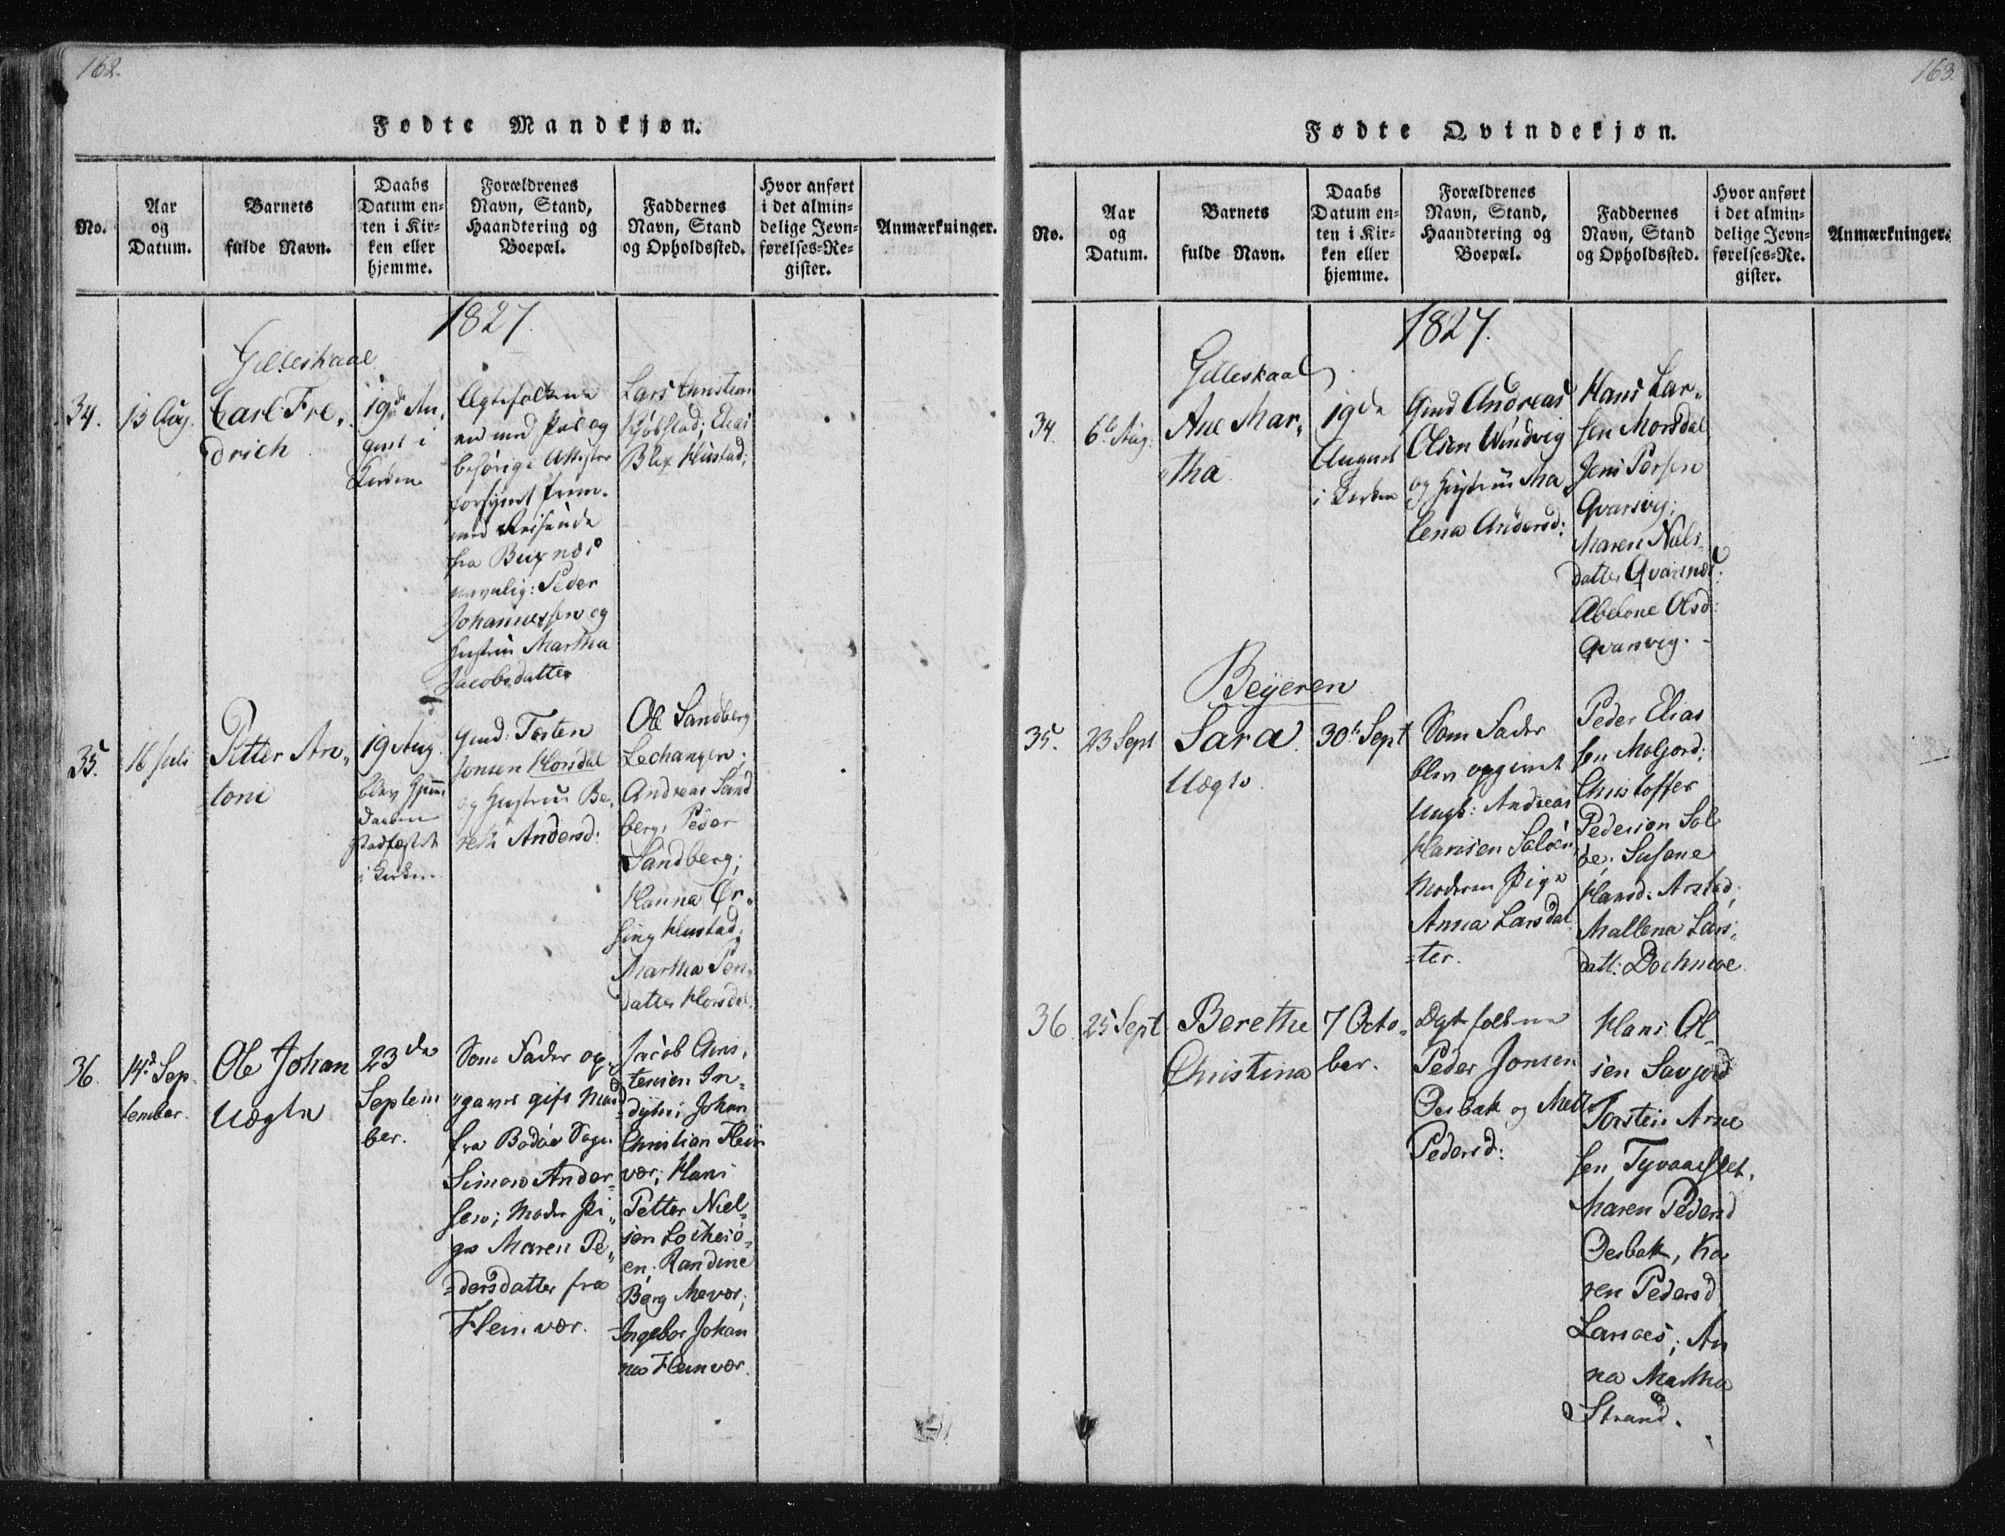 162.
Fødte Mandkjøn.
No.
Aar
og
Datum.
Barnets
fulde Navn.
Daabs
Datum en-
ten i Kir-
ken eller
hjemme.
Forældrenes
Navn, Stand,
Haandtering og
Boepæl.
Faddernes
Navn, Stand
og Opholdssted.
Hvor anført
i det almin-
delige Jevn-
førelses-Re-
gister.
Anmærkninger.
1827.
Gilleskaal
34.
15 Aug.
Carl Fre„
drich
19de Au,
gust i
Kirken
Ægtefolkene
med Pas og
fra Buxnæs
navnlig: Peder
Johannessen og
Hustrue Martha
Jacobsdatter
Lars Christian
Elias
Blix Hustad;
35.
16 Juli
Petter An„
toni
19 Aug.
blev Hjemme
Daaben
stadfæstet
i Kirken
Gmd: Torsten
Jonsen Horsdal
og Hustrue Be„
reth Andersd:
Ole Sandberg
Andreas Sand
berg, Peder
Sandberg;
Hanna
Hustad;
Martha
datter Horsdal
36.
14d Sep
tember.
Ole Johan
Uægte
23de
Septem
ber.
Som Fader op„
„gavet gift Mand
fra Bodøe Sogn
Simon Ander„
sen; Moder Pi„
ge Maren Pe„
„dersdatter fra
Fleinvær.
Jacob Chris„
tensen In„
dyhr; Johan
Christian Flein
vær; Hans
Petter Niel„
sen
en; Randine
Berg Mevær;
Ingebor Johan
na Fleinvær.
163.
Fødte Qvindekjøn.
No.
Aar
og
Datum.
Barnets
fulde Navn.
Daabs
Datum en-
ten i Kir-
ken eller
hjemme.
Forældrenes
Navn, Stand,
Haandtering og
Boepæl.
Faddernes
Navn, Stand
og Opholdssted.
Hvor anført
i det almin-
delige Jevn-
førelses-Re-
gister.
Anmærkninger.
1827.
Gilleskaal
34.
6te Aug:
Ane Mar„
„tha
19de
August
i Kirken
Gmd Andreas
Olsen Windvig
og Hustrue Ma
lena Andersd:
Hans Lar„
sen Morsdal
Jens Persen
Qvarsvig;
Maren Niels„
datter Qvarsnes:
Abelone Olsd:
Qvarsvig. -
Beyeren
35.
23 Sept
Sara.
Uægte.
30t Sept
Som Fader
blev opgivet
Ungk: Andreas
Hansen Soløen
Moderen Pige
Anna Larsdat
„ter.
Peder Elias
sen Moljord;
Christoffer
Pedersen Sol
øen. Susane
Hansd: Arstad;
Mallena Lars„
datt:
36
25 Sept
Berethe
Christina
7 Octo„
ber.
Ægtefolkene
Peder Jonsen
Oesbak og Mette
Pedersd:
Hans Ol„
sen Savjord
Torstein Arne
sen Tvaaeslet,
Maren Pedersd
Oesbak, Ka
ren Pedersd
Larsoes; An
na Martha
Strand.